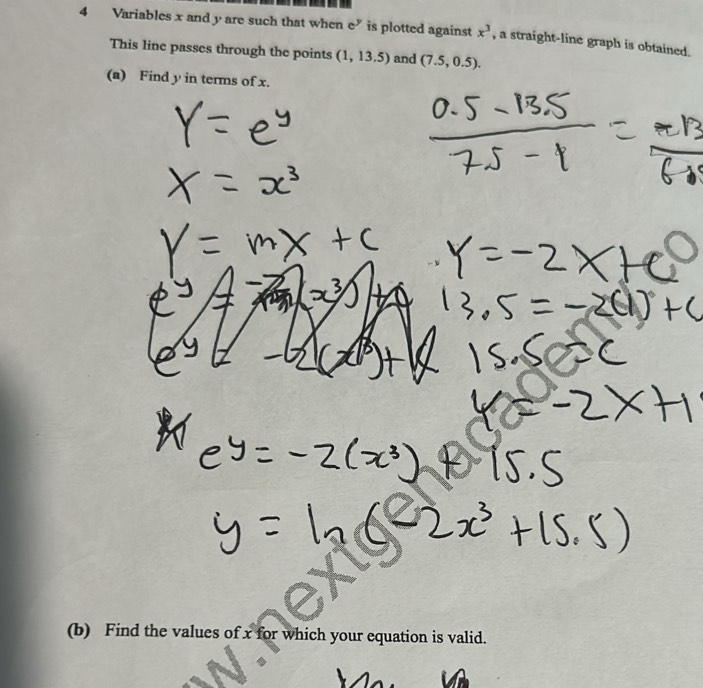 4 Variables x and y are such that when eʸ is plotted against x³, a straight-line graph is obtained.
This line passes through the points (1, 13.5) and (7.5, 0.5).
(a) Find y in terms of x.
Y = eʸ
X = x³
Y = mX + c
0.5 - 13.5 / 7.5 - 1 =
Y = -2X + c
13.5 = -2(1) + c
15.5 = c
Y = -2X + 1
eʸ = -2(x³) + 15.5
y = ln(-2x³ + 15.5)
(b) Find the values of x for which your equation is valid.
w.nextgenacademy.co